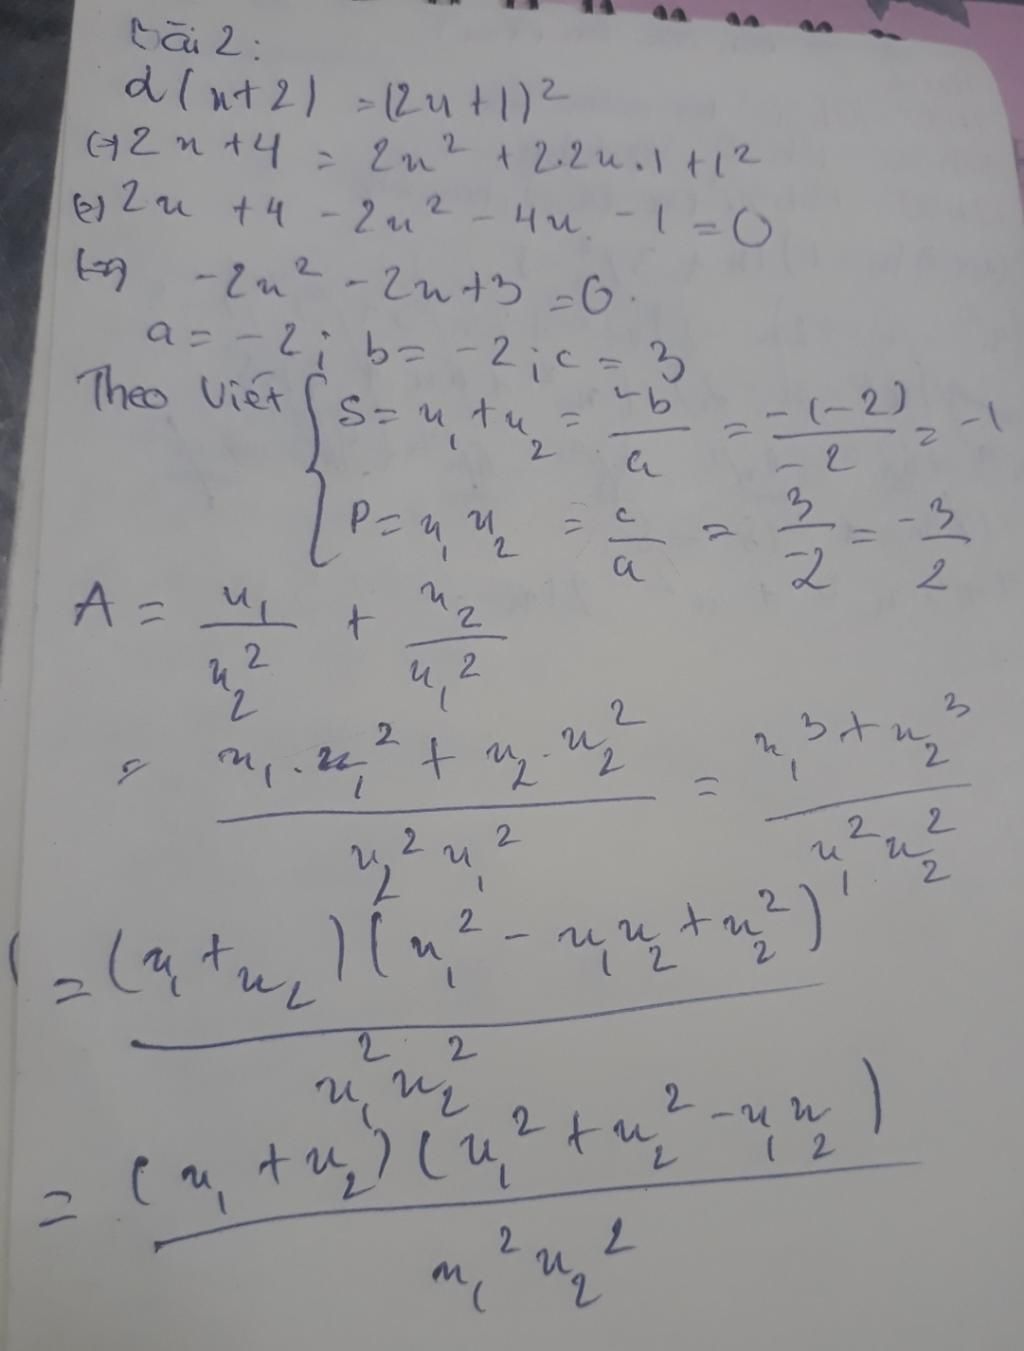 Bài 2:
2(x+2) = (2x+1)²
(=) 2x+4 = 2x² + 2.2x.1 + 1²
(=) 2x +4 - 2x² - 4x - 1 = 0
(=) -2x² - 2x + 3 = 0.
a = -2; b = -2; c = 3
Theo Viét { S = x₁ + x₂ = -b/a = -(-2)/-2 = -1
P = x₁ x₂ = c/a = 3/-2 = -3/2
A = x₁/x₂² + x₂/x₁²
= (x₁.x₁² + x₂.x₂²)/(x₂² x₁²) = (x₁³ + x₂³)/(x₁² x₂²)
= (x₁ + x₂)(x₁² - x₁x₂ + x₂²)/(x₁² x₂²)
= (x₁ + x₂)(x₁² + x₂² - x₁x₂)/(x₁² x₂²)